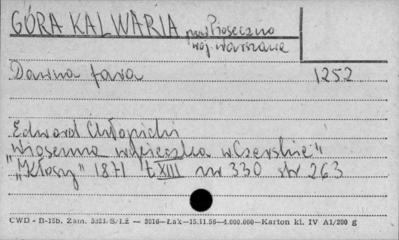 GÓRA KALWARIA pow. Piaseczno
woj. Warszawa
Dawna fara 1252
Edward Chłopicki
"Wiosenna wycieczka w Czerskie"
"Kłosy" 1871 t XIII nr 330 str 263
CWD - D-15b. Zam. 5321/S/Lż — 2016—Łak—15.11.56—4.000.000—Karton kl. IV A1/200 g